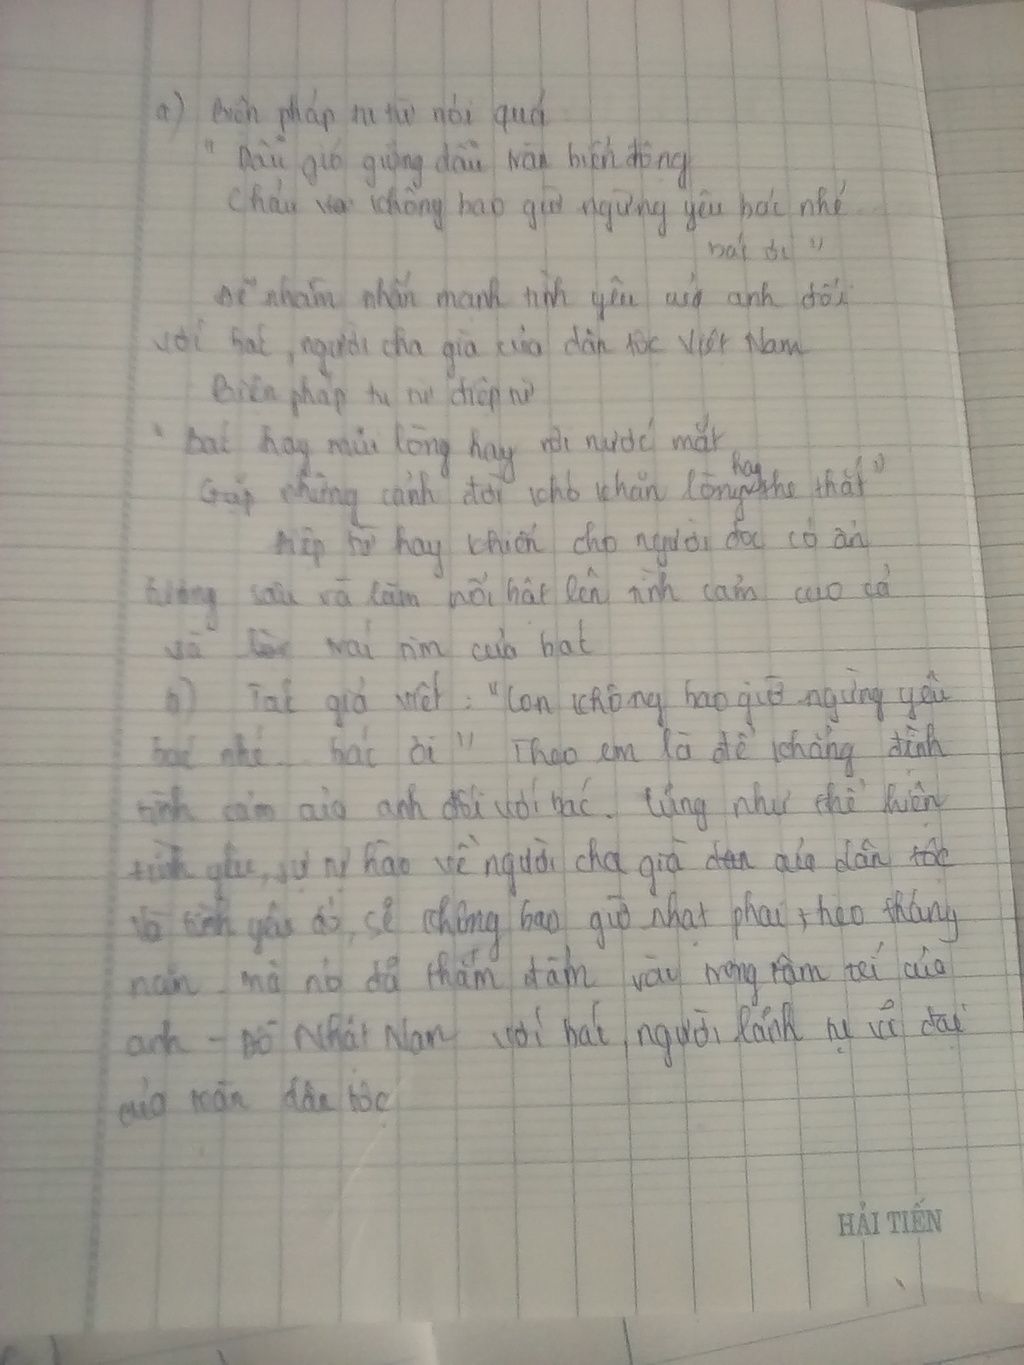 a) Biện pháp tu từ nói quá
" Dẫu gió giông dẫu tràn biển đông
Cháu vẫn không bao giờ ngừng yêu bác nhé
bác ơi "
Để nhằm nhấn mạnh tình yêu của anh đối
với bác, người cha già của dân tộc Việt Nam
Biện pháp tu từ điệp từ
" Bác hay mủi lòng hay rơi nước mắt
Gặp những cảnh đời khó khăn lòng hay se thắt "
điệp từ hay khiến cho người đọc có ấn
tượng sâu và làm nổi bật lên tình cảm cao cả
và trái tim của bác
b) Tác giả viết : "Con không bao giờ ngừng yêu
bác nhé bác ơi " Theo em là để khẳng định
tình cảm của anh đối với bác. Cũng như thể hiện
tình yêu, sự tự hào về người cha già của dân tộc
Và tình yêu đó, sẽ không bao giờ nhạt phai theo tháng
năm mà nó đã thấm đẫm vào trong tâm trí của
anh - Đỗ Nhật Nam với bác, người lãnh tụ vĩ đại
của toàn dân tộc
HẢI TIẾN